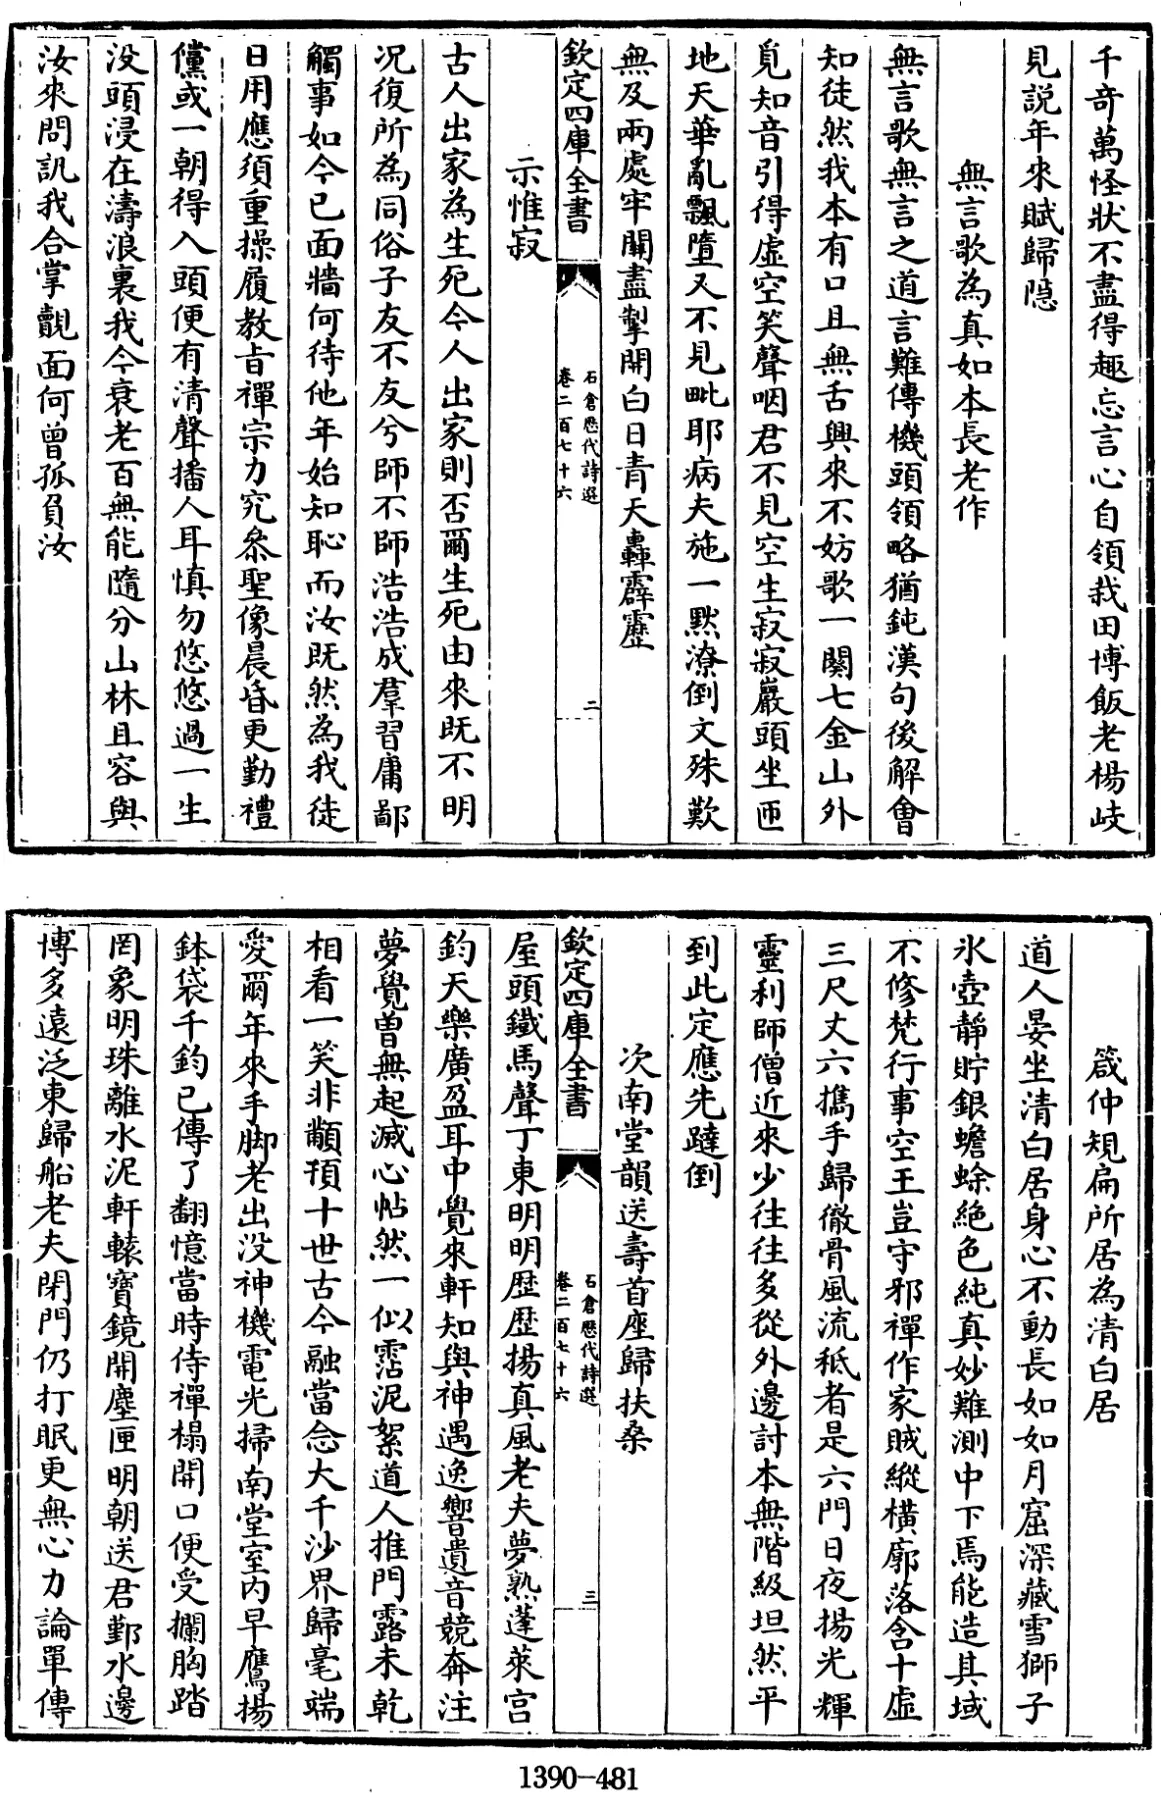 千奇萬怪狀不盡得趣忘言心自領栽田博飯老楊岐
見説年來賦歸隐
無言歌為真如本長老作
無言歌無言之道言難傳機頭領略猶鈍漢句後解會
知徒然我本有口且無舌興來不妨歌一闋七金山外
覓知音引得虚空笑聲咽君不見空生寂寂巖頭坐匝
地天華亂飄墮又不見毗耶病夫施一黙潦倒文殊歎
無及兩處牢關盡掣開白日青天轟霹靂
欽定四庫全書
石倉歴代詩選
卷二百七十六
二
示惟寂
古人出家為生死今人出家則否爾生死由來既不明
况復所為同俗子友不友兮師不師浩浩成羣習庸鄙
觸事如今已面牆何待他年始知恥而汝既然為我徒
日用應須重操履教旨禪宗力究叅聖像晨昏更勤禮
儻或一朝得入頭便有清聲播人耳慎勿悠悠過一生
没頭浸在濤浪裏我今衰老百無能隨分山林且容與
汝來問訊我合掌覿面何曾孤負汝
箴仲規扁所居為清白居
道人晏坐清白居身心不動長如如月窟深藏雪獅子
氷壺靜貯銀蟾蜍絶色純真妙難測中下焉能造其域
不修梵行事空王豈守邪禪作家賊縱横廓落含十虚
三尺丈六攜手歸徹骨風流秪者是六門日夜揚光輝
靈利師僧近來少往往多從外邊討本無階級坦然平
到此定應先躂倒
次南堂韻送壽首座歸扶桑
欽定四庫全書
石倉歴代詩選
卷二百七十六
三
屋頭鐵馬聲丁東明明歴歴揚真風老夫夢熟蓬萊宫
鈞天樂廣盈耳中覺來軒知與神遇逸響遺音競奔注
夢覺曽無起滅心帖然一似霑泥絮道人推門露未乾
相看一笑非顢頇十世古今融當念大千沙界歸毫端
愛爾年來手脚老出没神機電光掃南堂室内早鷹揚
鉢袋千鈞已傳了翻憶當時侍禪榻開口便受攔胸踏
罔象明珠離水泥軒轅寶鏡開塵匣明朝送君鄞水邊
博多遠泛東歸船老夫閉門仍打眠更無心力論單傳
1390-481